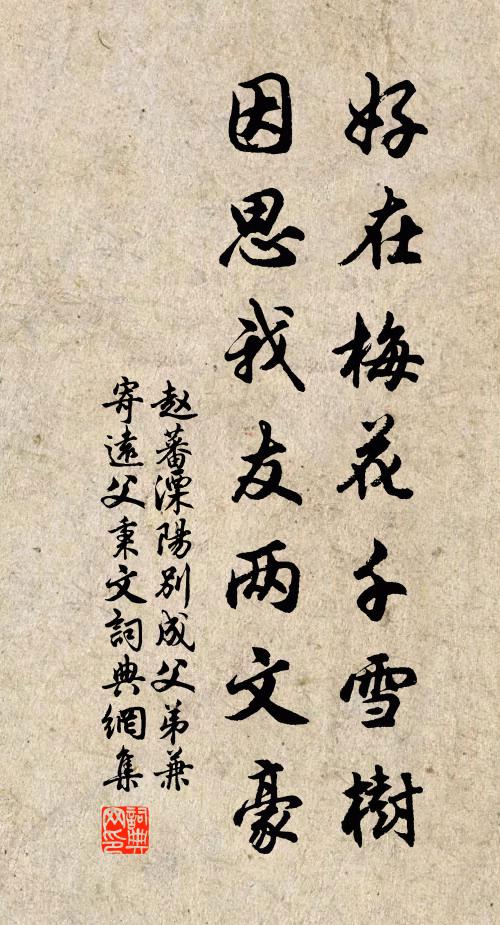 好在梅花千雪樹
因思我友两文豪
赵蕃溧陽别成父弟兼
寄遠父秉文詞典網集
詞典网印